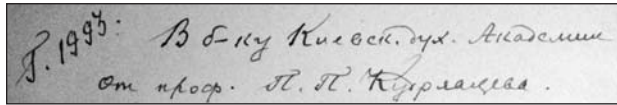 Г. 1993: В б-ку Киевск. дух. Академии
от проф. П. П. Кудрявцева.